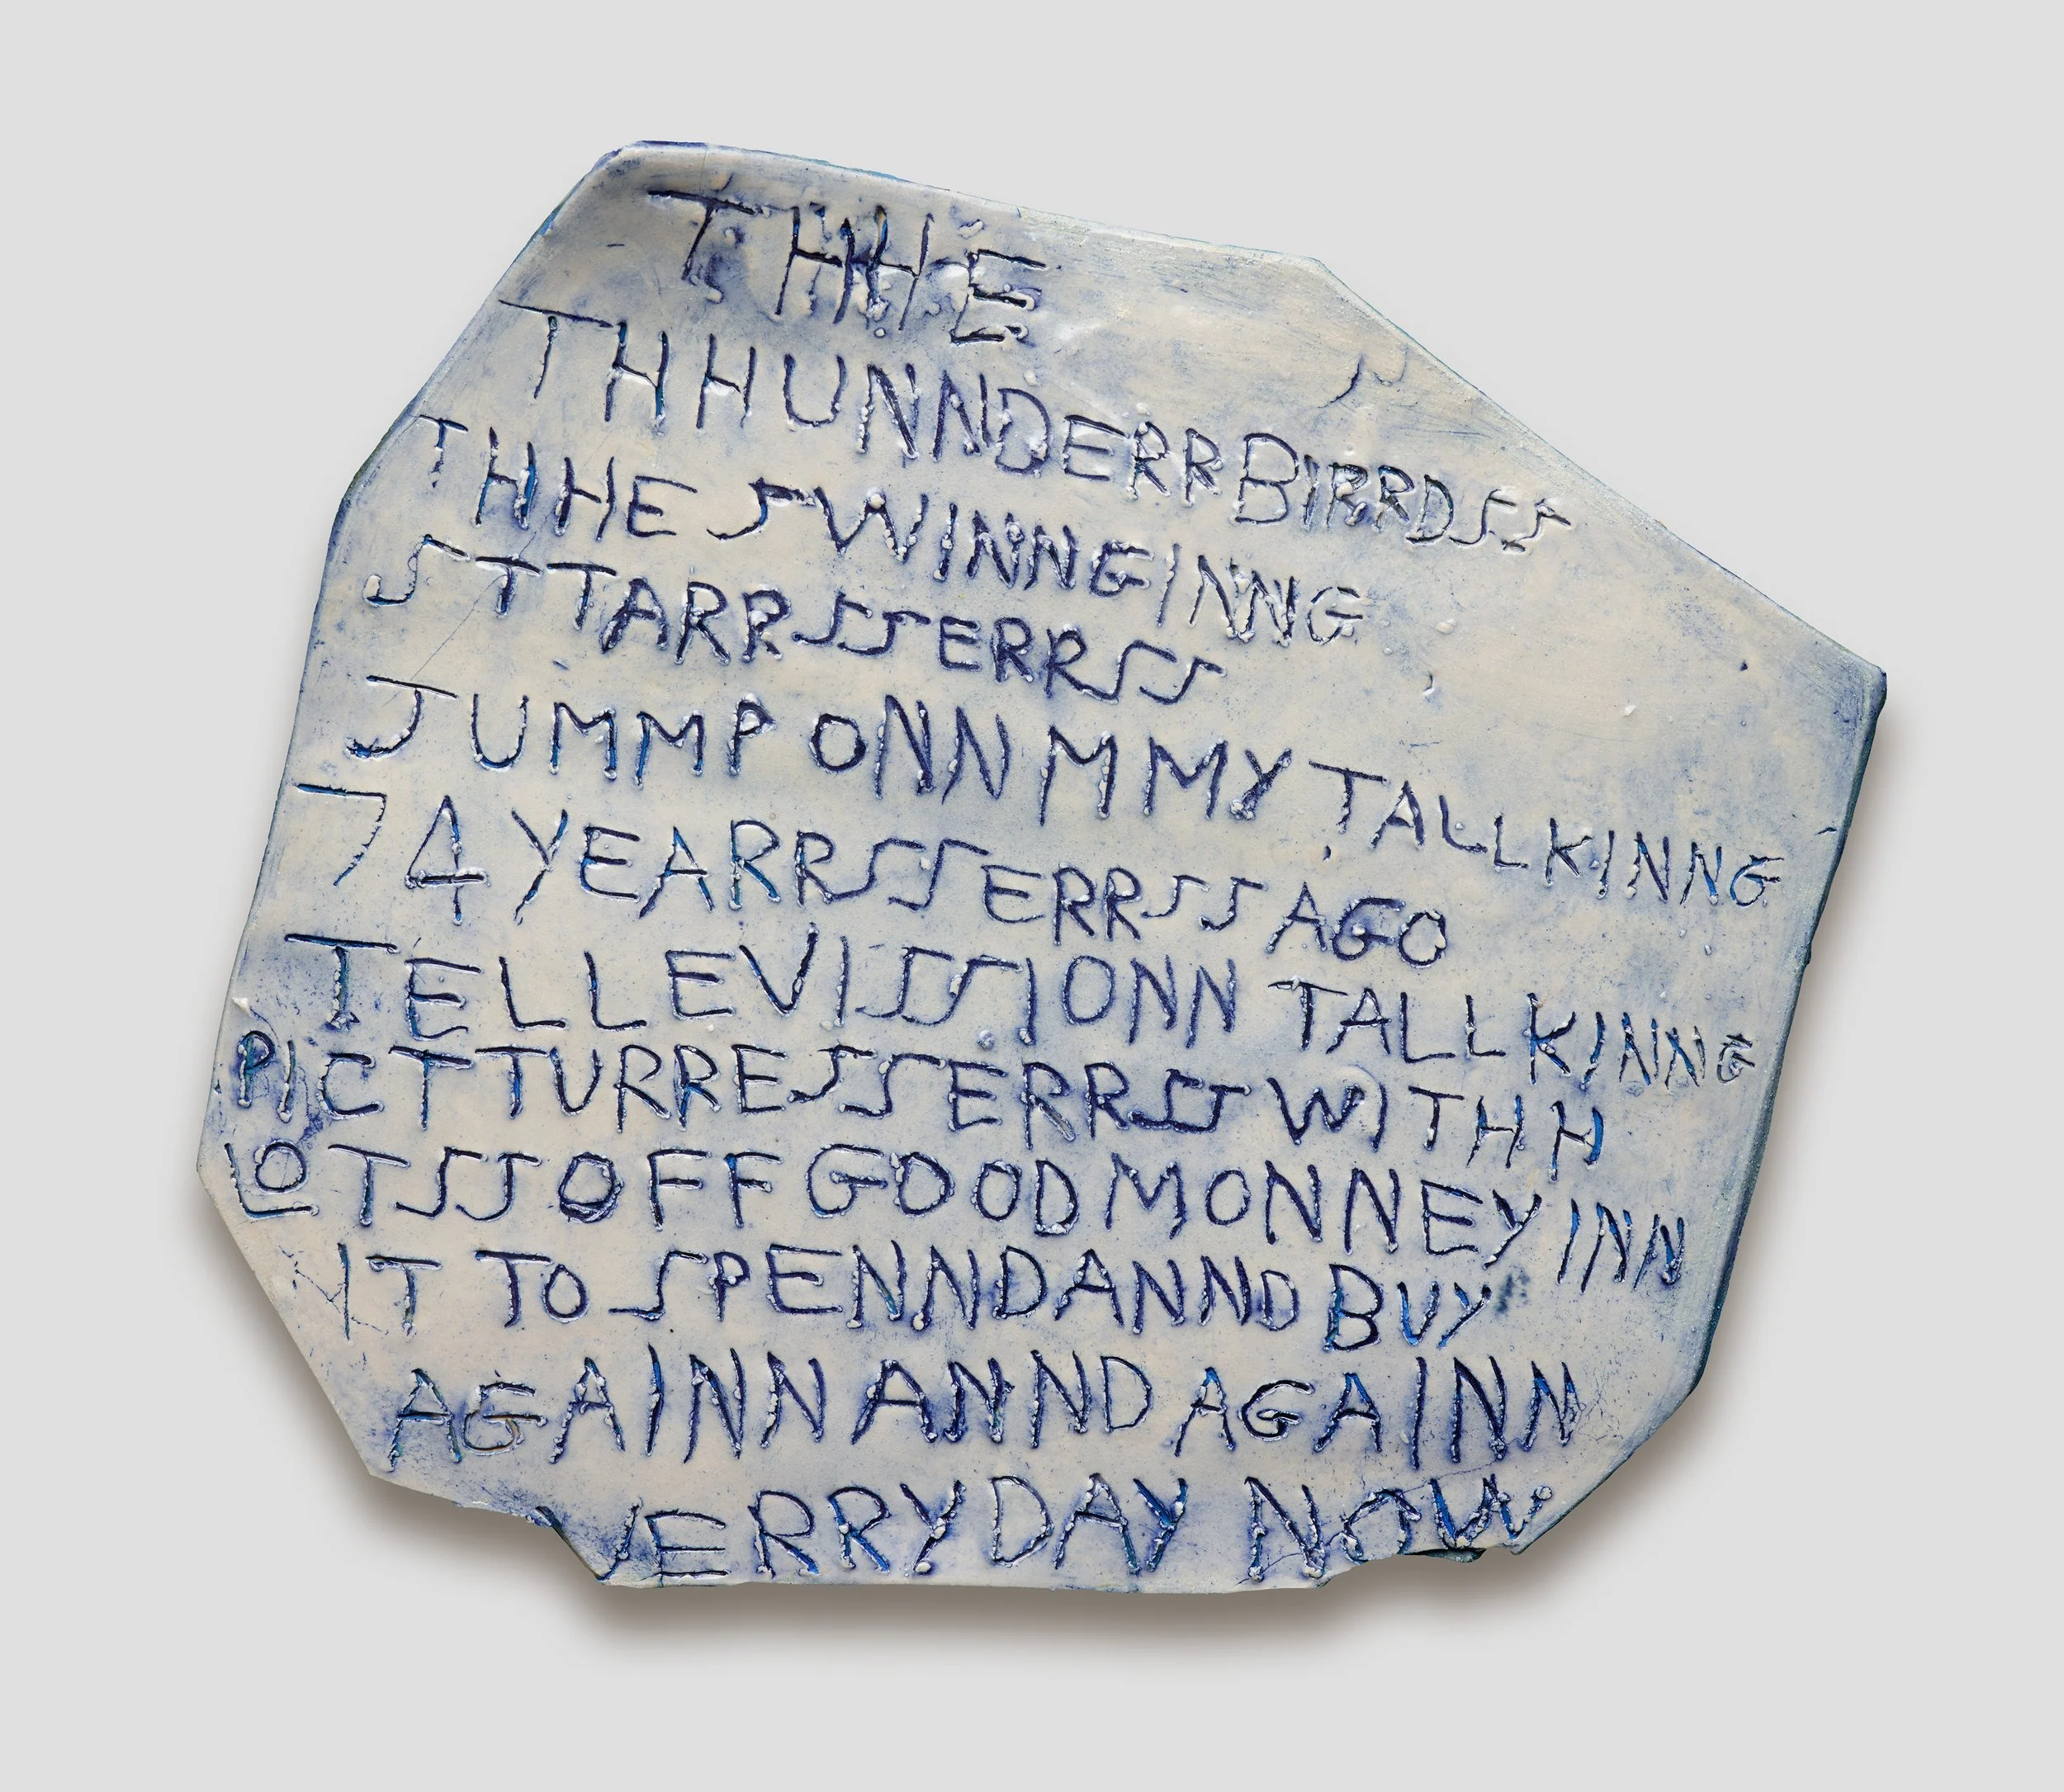 THHE
THHUNNDERRBIRRDSS
THHE SWINNGINNG
STTARRSSERRSS
JUMMP ONN MMY TALLKINNG
74 YEARRSSERRSS AGO
TELLEVISSIONN TALLKINNG
PICTTURRESSERRSS WITHH
LOTSS OFF GOOD MONNEY INN
IT TO SPENND ANND BUY
AGAINN ANND AGAINN
VERRYDAY NOW